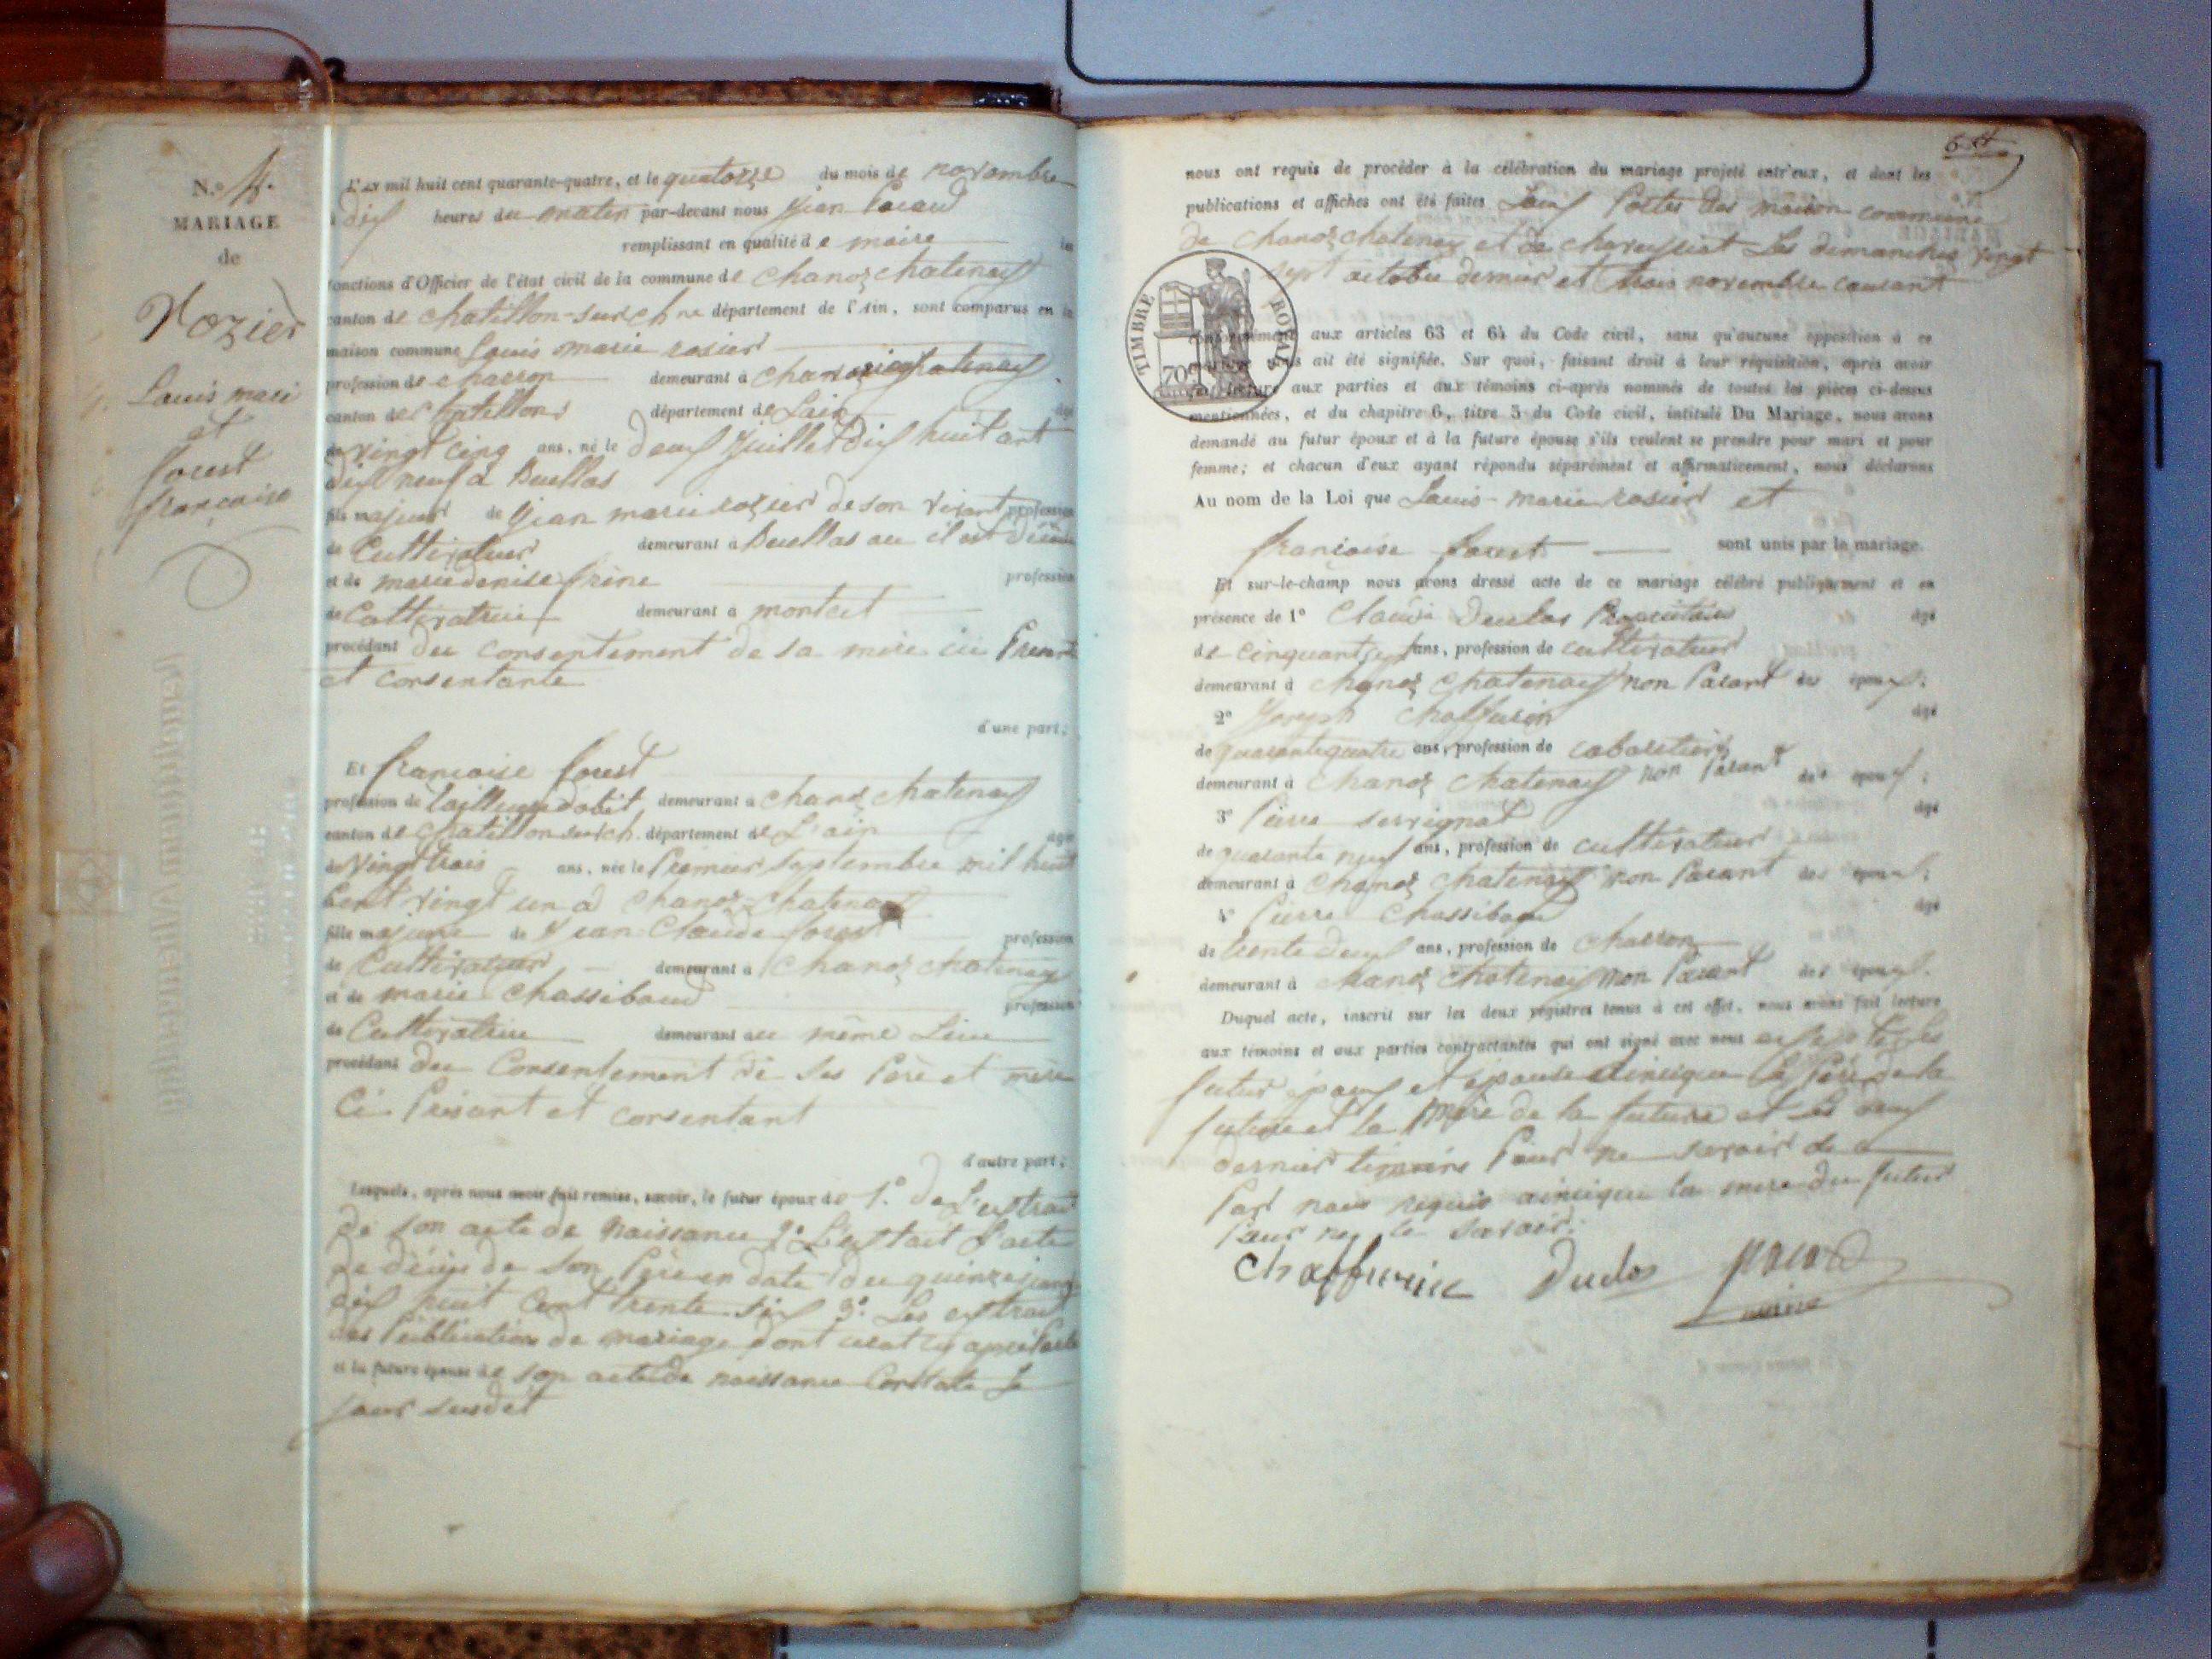 N.° 4.
MARIAGE
de
Rozier
Louis marie
et
forest
françoise
L'an mil huit cent quarante-quatre, et le quatorze du mois de novembre
à dix heures du matin par-devant nous Jean
remplissant en qualité de maire les
fonctions d'Officier de l'état civil de la commune de chanoz chatenay
canton de chatillon-sur-ch ne département de l'Ain, sont comparus en la
maison commune louis marie rosier
profession de charron demeurant à chanoz chatenay
canton de chatillon département de Lain âgé
de vingt cinq ans, né le deux Juillet dix huit cent
dix neuf a Buellas
fils majeur de Jean marie rozier de son vivant profession
de Cultivateur demeurant à Buellas ou il est décédé
et de marie denise frène profession
de Cultivatrice demeurant à montcet
procédant du consentement de sa mere ici Presente
et consentante
d'une part;
Et francoise forest
profession de tailleuse dabit demeurant à chanoz chatenay
canton de chatillon sur ch. département de L'ain âgée
de Vingt trois ans, née le Premier Septembre mil huit
Cent vingt un a chanoz-chatenay
fille majeure de Jean Claude forest profession
de Cultivateur demeurant à chanoz chatenay
et de marie Chassibaud profession
de Cultivatrice demeurant au même Lieu
procédant du Consentement de Ses Père et mère
Ci Présant et consentant
d'autre part;
Lesquels, après nous avoir fait remise, savoir, le futur époux de 1.° de L'extrait
de son acte de naissance 2.° L'extrait d'acte
de décès de Son Père en date du quinze
dix huit Cent trente six 3.° Les extrait
des Publication de mariage dont
et la future épouse de son acte de naissance Constate Le
jour susdit
nous ont requis de procéder à la célébration du mariage projeté entr'eux, et dont les
publications et affiches ont été faites aux Portes des maison commune
de chanoz chatenay et de chaveyriat Les dimanches vingt
sept octobre dernier et trois novembre courant
TIMBRE ROYAL
70c
conformément aux articles 63 et 64 du Code civil, sans qu'aucune opposition à ce
mariage nous ait été signifiée. Sur quoi, faisant droit à leur réquisition, après avoir
fait lecture aux parties et aux témoins ci-après nommés de toutes les pièces ci-dessus
mentionnées, et du chapitre 6, titre 5 du Code civil, intitulé Du Mariage, nous avons
demandé au futur époux et à la future épouse s'ils veulent se prendre pour mari et pour
femme; et chacun d'eux ayant répondu séparément et affirmativement, nous déclarons
Au nom de la Loi que Louis-marie rosier et
françoise forest sont unis par le mariage.
Et sur-le-champ nous avons dressé acte de ce mariage célébré publiquement et en
présence de 1° Claude Duclos Propriétaire âgé
de cinquante ans, profession de cultivateur
demeurant à chanoz chatenay non Parant des époux;
2° Joseph Chaffurin âgé
de quarante quatre ans, profession de cabaretier
demeurant à chanoz chatenay non Parant des époux;
3° Pierre servignat âgé
de quarante neuf ans, profession de cultivateur
demeurant à chanoz chatenay non Parant des époux;
4° Pierre Chassibaud âgé
de trente deux ans, profession de charron
demeurant à chanoz chatenay non Parant des époux.
Duquel acte, inscrit sur les deux registres tenus à cet effet, nous avons fait lecture
aux témoins et aux parties contractantes qui ont signé avec nous excepte les
futur époux et epouse ainsique le Père de la
future et la mère de la future et les deux
dernier temoins Pour ne savoir de ce
Par nous requis ainsique la mere du futur
Pour ne le savoir.
Chaffurin Duclos
maire